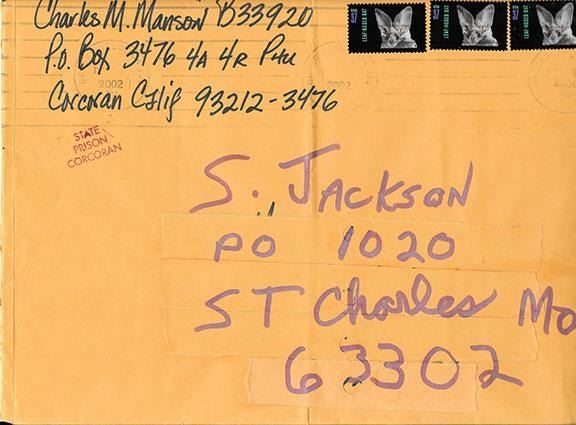 Charles M. Manson B33920
P.O. Box 3476 4A 4R PHU
Corcoran Calif 93212-3476
37 LEAF-NOSED BAT
37 LEAF-NOSED BAT
37 LEAF-NOSED BAT
2002
2002
STATE
PRISON
CORCORAN
S. JACKSON
PO 1020
ST Charles Mo
63302